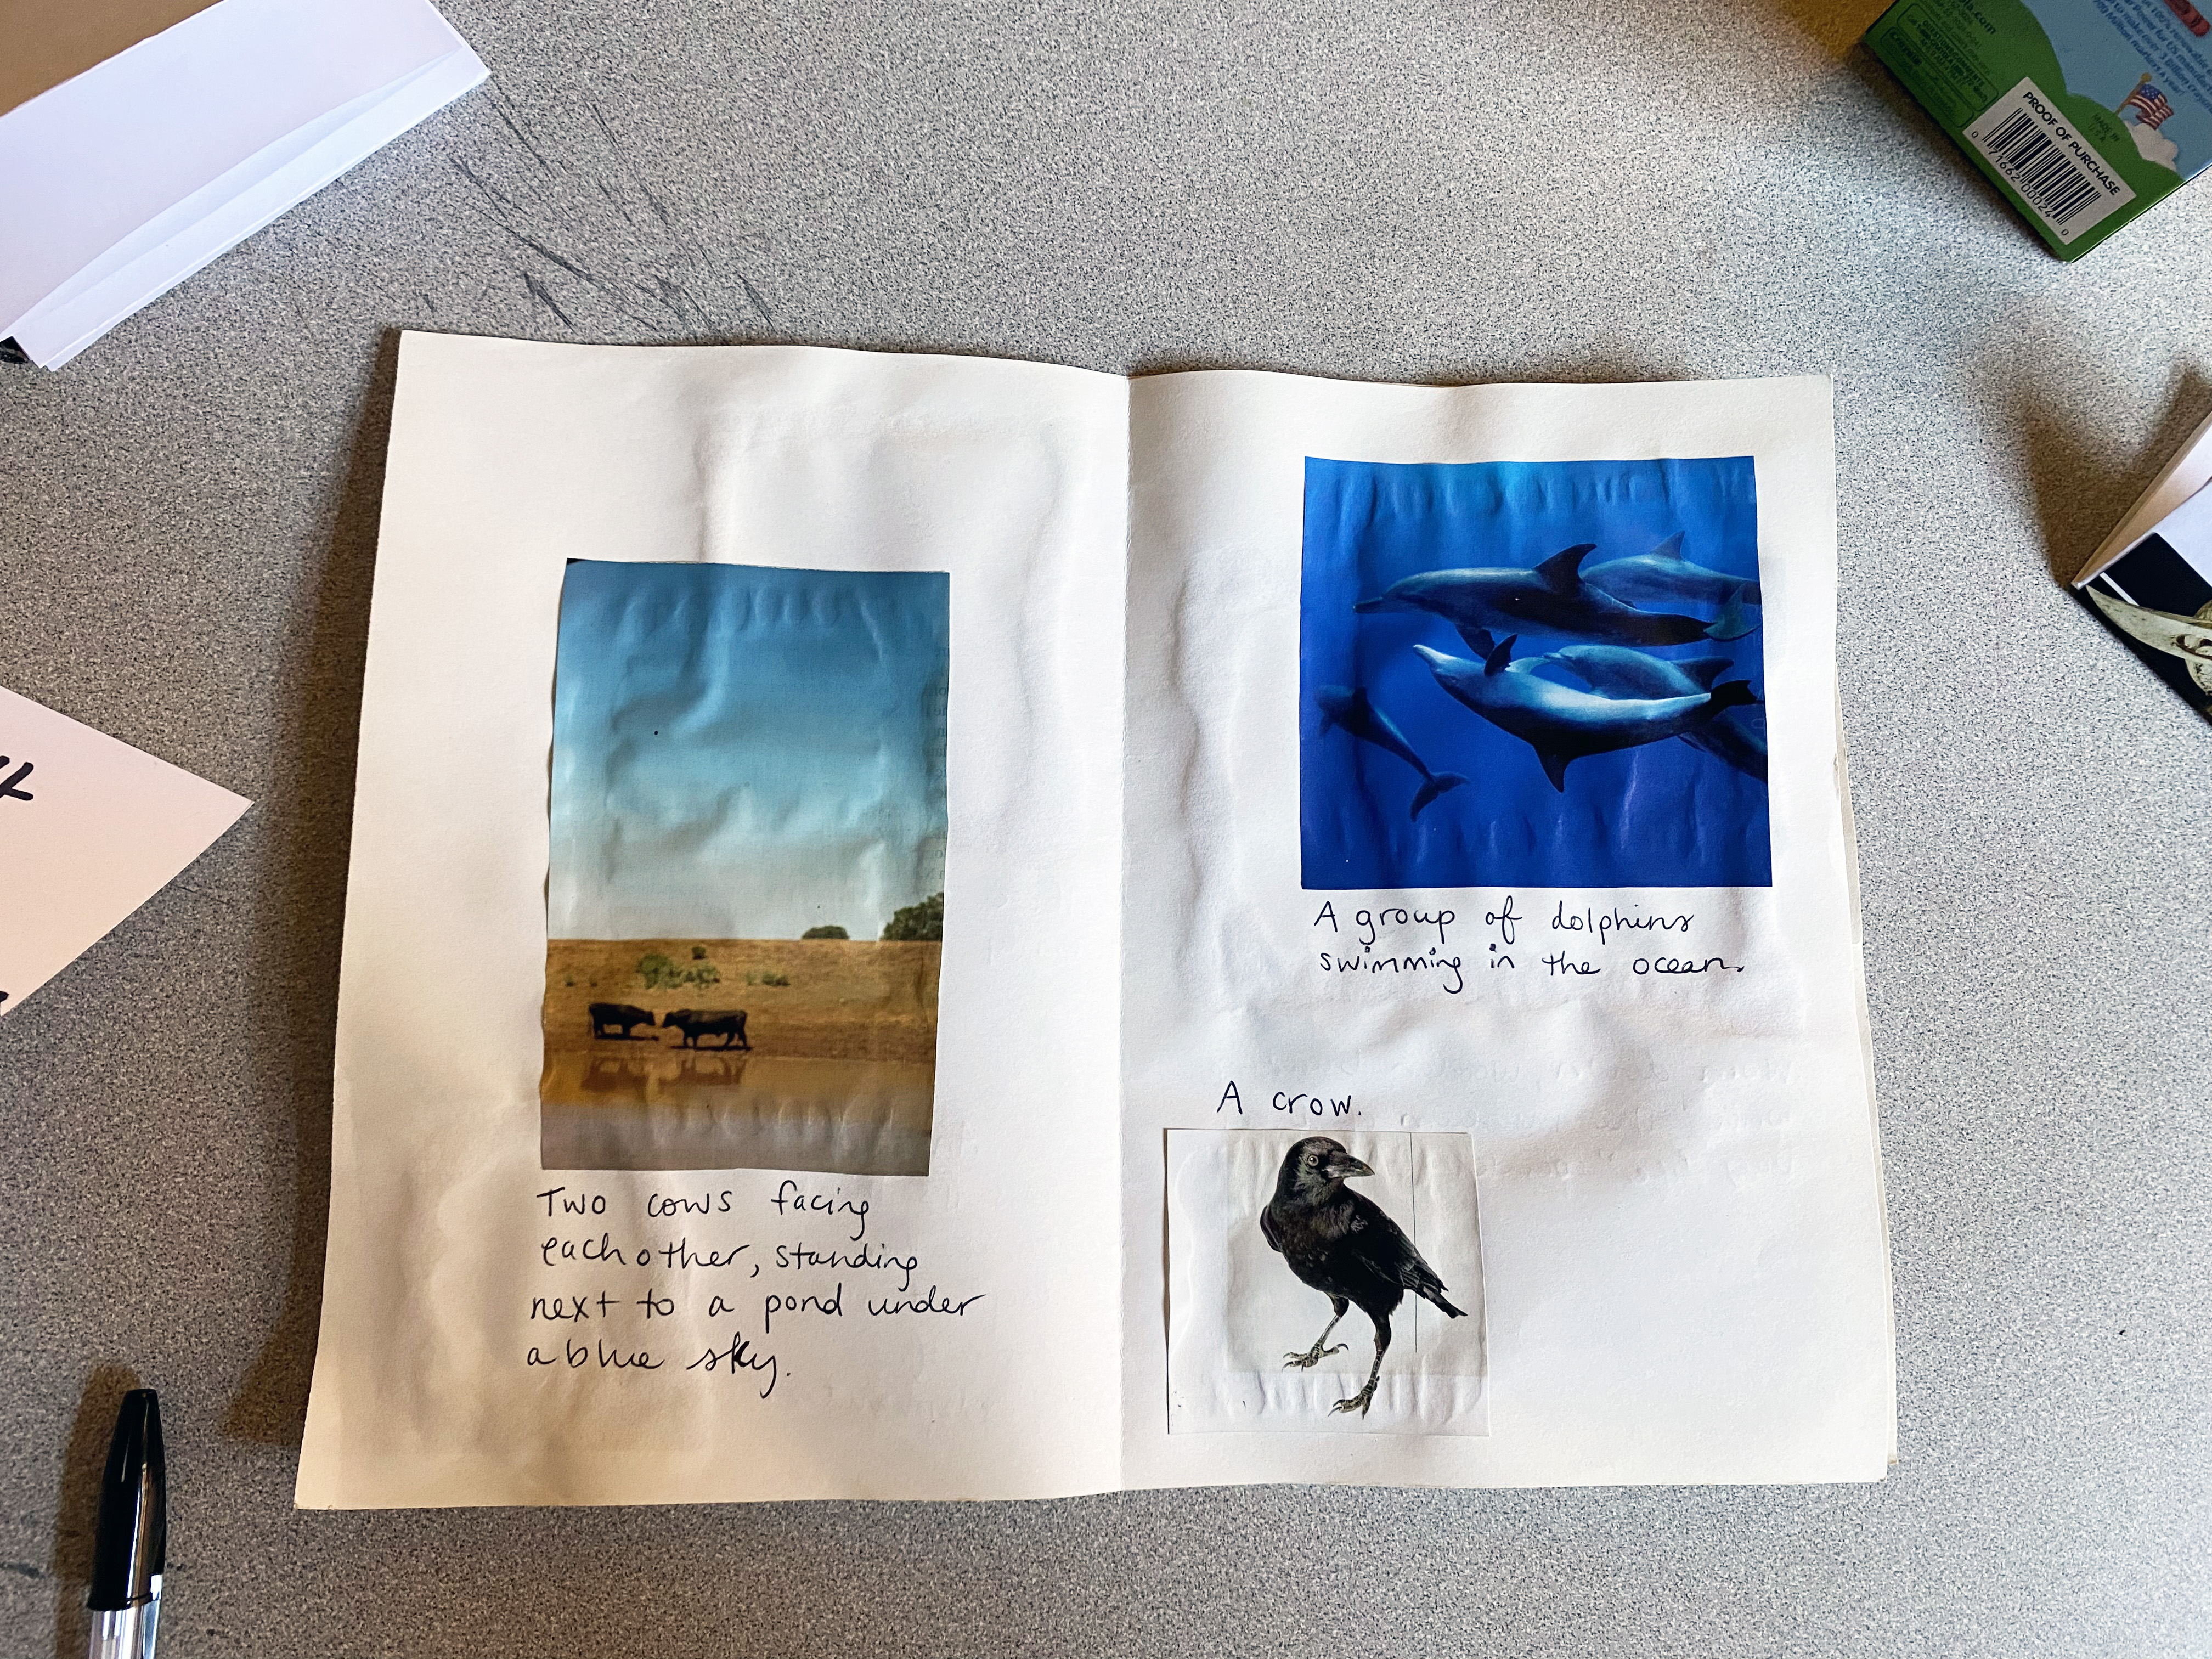 Two cows facing
each other, standing
next to a pond under
a blue sky.
A group of dolphins
swimming in the ocean.
A crow.
PROOF OF PURCHASE
MADE IN
U.S.A.
0 71662 00024 0